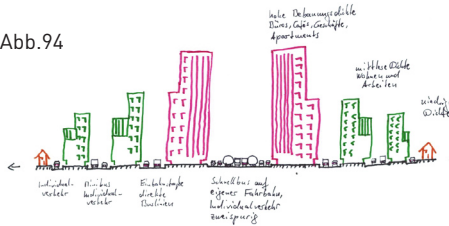 Abb.94
hohe Bebauungsdichte
Büros, Cafés, Geschäfte,
Apartments
mittlere Dichte
Wohnen und
Arbeiten
niedrige
Dichte
Individual-
verkehr
Minibus
Individual-
verkehr
Einbahnstraße
direkte
Buslinien
Schnellbus auf
eigener Fahrbahn,
Individualverkehr
zweispurig